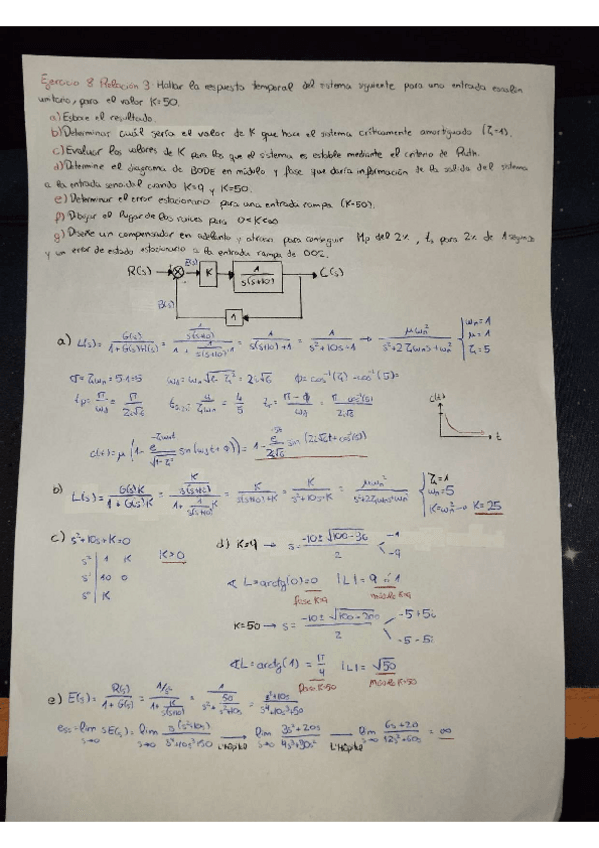 Ejercicio 8 Relación 3: Hallar la respuesta temporal del sistema siguiente para una entrada escalón
unitario, para el valor K=50.
a) Esboce el resultado.
b) Determinar cuál sería el valor de K que hace el sistema críticamente amortiguado (ζ=1).
c) Evaluar los valores de K para los que el sistema es estable mediante el criterio de Routh.
d) Determine el diagrama de BODE en módulo y fase que daría información de la salida del sistema
a la entrada senoidal cuando K=9 y K=50.
e) Determinar el error estacionario para una entrada rampa (K=50).
f) Dibujar el lugar de las raíces para 0<K<∞
g) Diseñe un compensador en adelanto y atraso para conseguir Mp del 2%, ts para 2% de 1 segundo
y un error de estado estacionario a la entrada rampa de
R(s) E(s) K 1/s(s+10) C(s)
B(s) 1
a) L(s) = G(s)/1+G(s)H(s) = 1/s(s+10) / 1+1/s(s+10)·1 = 1/s(s+10)+1 = 1/s²+10s+1 → μωn²/s²+2ζωns+ωn² { ωn=1 μ=1 ζ=5
σ=ζωn=5·1=5 ωd=ωn√1-ζ² = 2√6 φ=cos⁻¹(ζ)
tp = π/ωd = π/2√6 4/ζωn = 4/5 tr = π-φ/ωd = π-cos⁻¹(5)/2√6
c(t) t
c(t)=μ(1- e^-ζωnt/√1-ζ² sen(ωdt+φ)) = 1- e^-5t/2√6 sen(2√6t+cos⁻¹(5))
b) L(s) = G(s)K/1+G(s)K = K/s(s+10) / 1+K/s(s+10) = K/s(s+10)+K = K/s²+10s+K = μωn²/s²+2ζωns+ωn² { ζ=1 ωn=5 K=ωn² → K=25
c) s²+10s+K=0
s² 1 K
s¹ 10 0
s⁰ K
K>0
d) K=9 → s= -10±√100-36/2 -1 -9
∢ L=arctg(0)=0 |L|=9 ó 1
fase K=9 módulo K=9
K=50 → s= -10±√100-200/2 -5+5i -5-5i
∢L=arctg(1)=π/4 |L|=√50
fase K=50 módulo K=50
e) E(s) = R(s)/1+G(s) = 1/s²/1+K/s(s+10)
ess=lim s→0 sE(s) = lim s→0 L'Hôpital lim s→0 L'Hôpital lim s→0 6s+20/12s²+60s = ∞